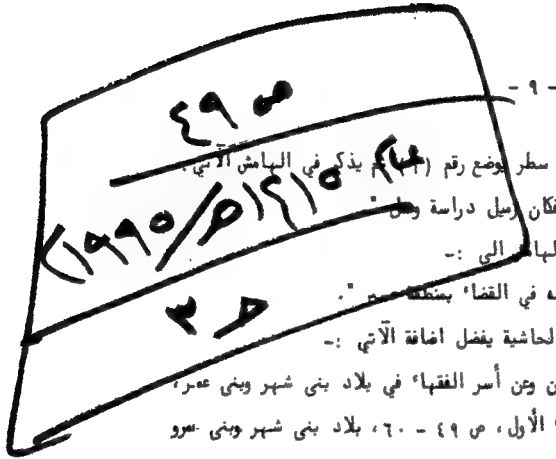 - ٩ -
ص ٤٩
سطر يوضع رقم ( يذكر في الهامش الآتي :
(١٤١٥ه/١٩٩٥)
فكان زميل دراسة وعمل "
الهامش الى :-
ه في القضاء بمنطقة عسير ".
ح ٣
لحاشية يفضل اضافة الآتي :-
ن وعن أسر الفقهاء في بلاد بنى شهر وبنى عمر،
الأول، ص ٤٩ - ٦٠، بلاد بنى شهر وبنى عمرو